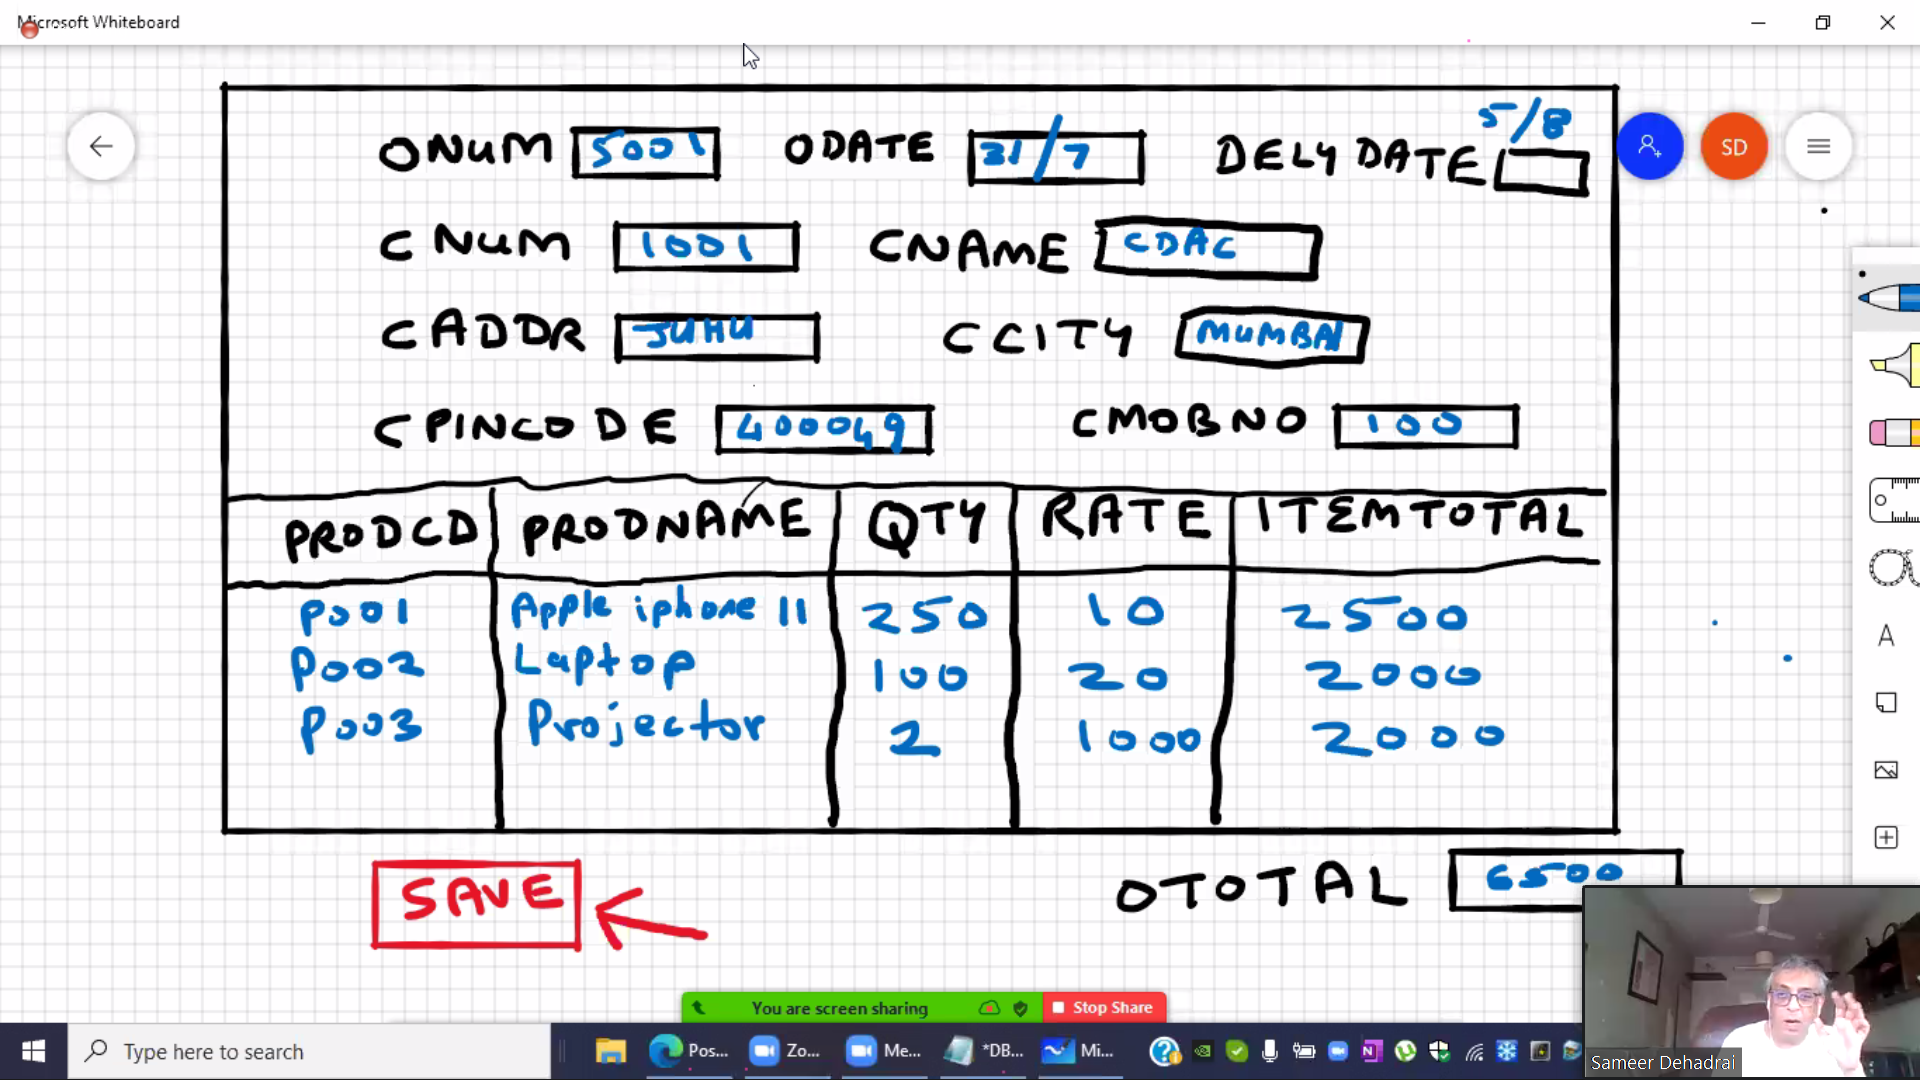 Microsoft Whiteboard
5/8
ONUM 5001 ODATE 31/7 DELYDATE
SD
CNUM 1001 CNAME CDAC
CADDR JUHU CCITY MUMBAI
CPINCODE 400049 CMOBNO 100
PRODCD PRODNAME QTY RATE ITEMTOTAL
P001 Apple iphone 11 250 10 2500
P002 Laptop 100 20 2000
P003 Projector 2 1000 2000
SAVE OTOTAL 6500
You are screen sharing Stop Share
Type here to search Pos... Zo... Me... *DB... Mi...
Sameer Dehadrai